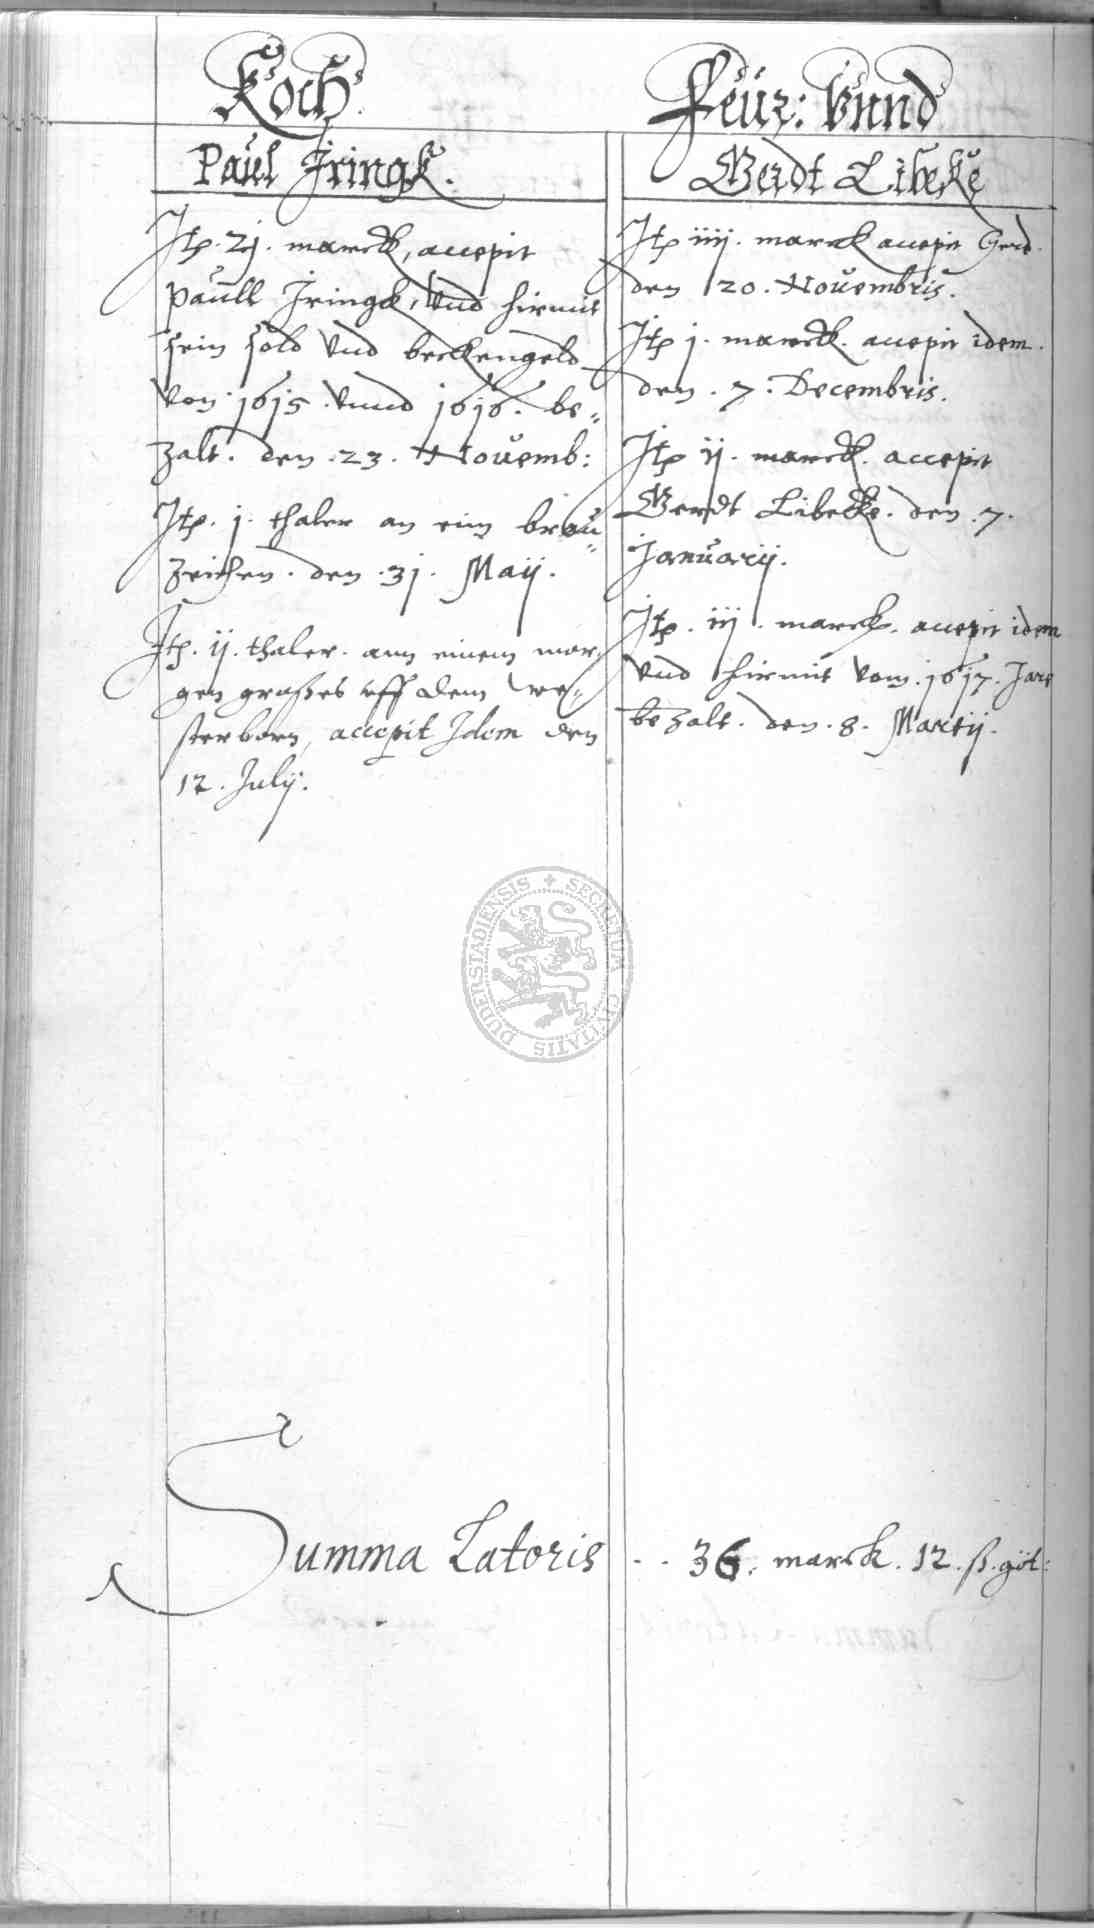 Koch.
Paul Iringk.
Itp. 21. marck, accepit
Paull Iringk, vnd hirmit
sein sold vnd beckengeld
von 1615. vnnd 1616. be=
zalt. den .23. Nouemb:
Itp. j. thaler an ein brau=
zeichen. den .31. Maij.
Itp. ij. thaler. ann einem mor=
gen graßes vff dem We=
sterborn, accepit Idem den
12. Julij.
Feur: Vnnd
Gerdt Libeke
Itp iiij. marck accepit Gerd.
den 20. Nouembris.
Itp j. marck. accepit idem.
den . 7: Decembris.
Itp ij. marck. accepit
Gerdt Libecke. den .7.
Januarij.
Itp. iij. marck. accepit idem
vnd hirmit vom .1617. Jare
bezalt. den .8. Martij.
DUDERSTADIENSIS + SECRETUM CIVITATIS
Summa Latoris . . 36. marck. 12. ß. göt: